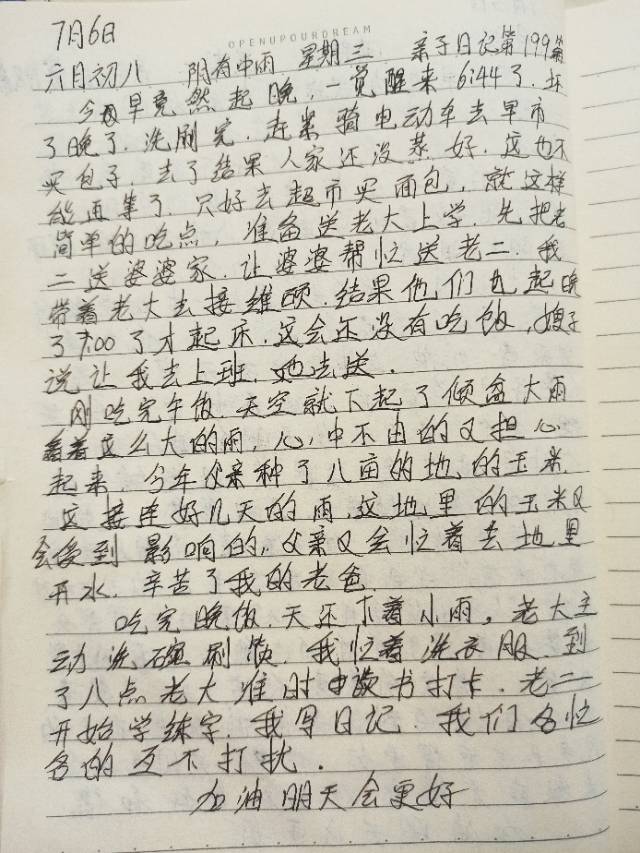 7月6日
OPENUPOURDREAM
六月初八 阴有中雨 星期三 亲子日记第199篇
今早竟然起晚,一觉醒来 6:44了.坏
了晚了.洗刷完.赶紧骑电动车去早市
买包子.去了结果人家还没蒸好.这也不
能再等了.只好去超市买面包,就这样
简单的吃点,准备送老大上学.先把老
二送婆婆家.让婆婆帮忙送老二.我
带着老大去接维颐.结果他们也起晚
了7:00了才起床.这会还没有吃饭,嫂子
说让我去上班.她去送.
刚吃完午饭 天空就下起了倾盆大雨
看着这么大的雨,心,中不由的又担心
起来.今年父亲种了八亩的地的玉米.
这接连好几天的雨.这地里的玉米又
会受到影响的,父亲又会忙着去地里
开水.辛苦了我的老爸
吃完晚饭.天还下着小雨。老大主
动洗碗刷筷.我忙着洗衣服.到
了八点老大准时读书打卡.老二
开始学练字.我写日记.我们各忙
各的互不打扰.
加油明天会更好